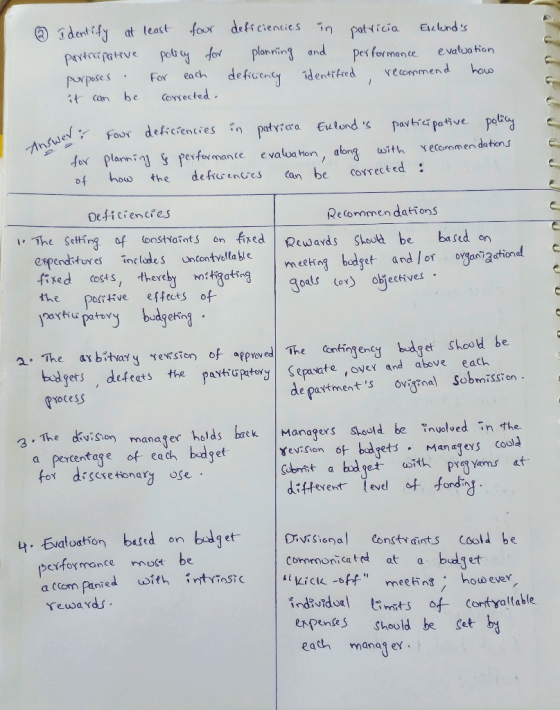 ② Identify at least four deficiencies in patricia Eklund's
participative policy for planning and performance evaluation
purposes. For each deficiency identified, recommend how
it can be corrected.
Answer:- Four deficiencies in patricia Eklund's participative policy
for planning & performance evaluation, along with recommendations
of how the deficiencies can be corrected :
Deficiencies
1. The setting of constraints on fixed
expenditures includes uncontrollable
fixed costs, thereby mitigating
the positive effects of
participatory budgeting.
2. The arbitrary revision of approved
budgets, defeats the participatory
process
3. The division manager holds back
a percentage of each budget
for discretionary use.
4. Evaluation based on budget
performance must be
accompanied with intrinsic
rewards.
Recommendations
Rewards should be based on
meeting budget and/or organizational
goals (or) objectives.
The contingency budget should be
separate, over and above each
department's original submission.
Managers should be involved in the
revision of budgets. Managers could
submit a budget with programs at
different level of funding.
Divisional constraints could be
communicated at a budget
"kick-off" meeting; however,
individual limits of controllable
expenses should be set by
each manager.